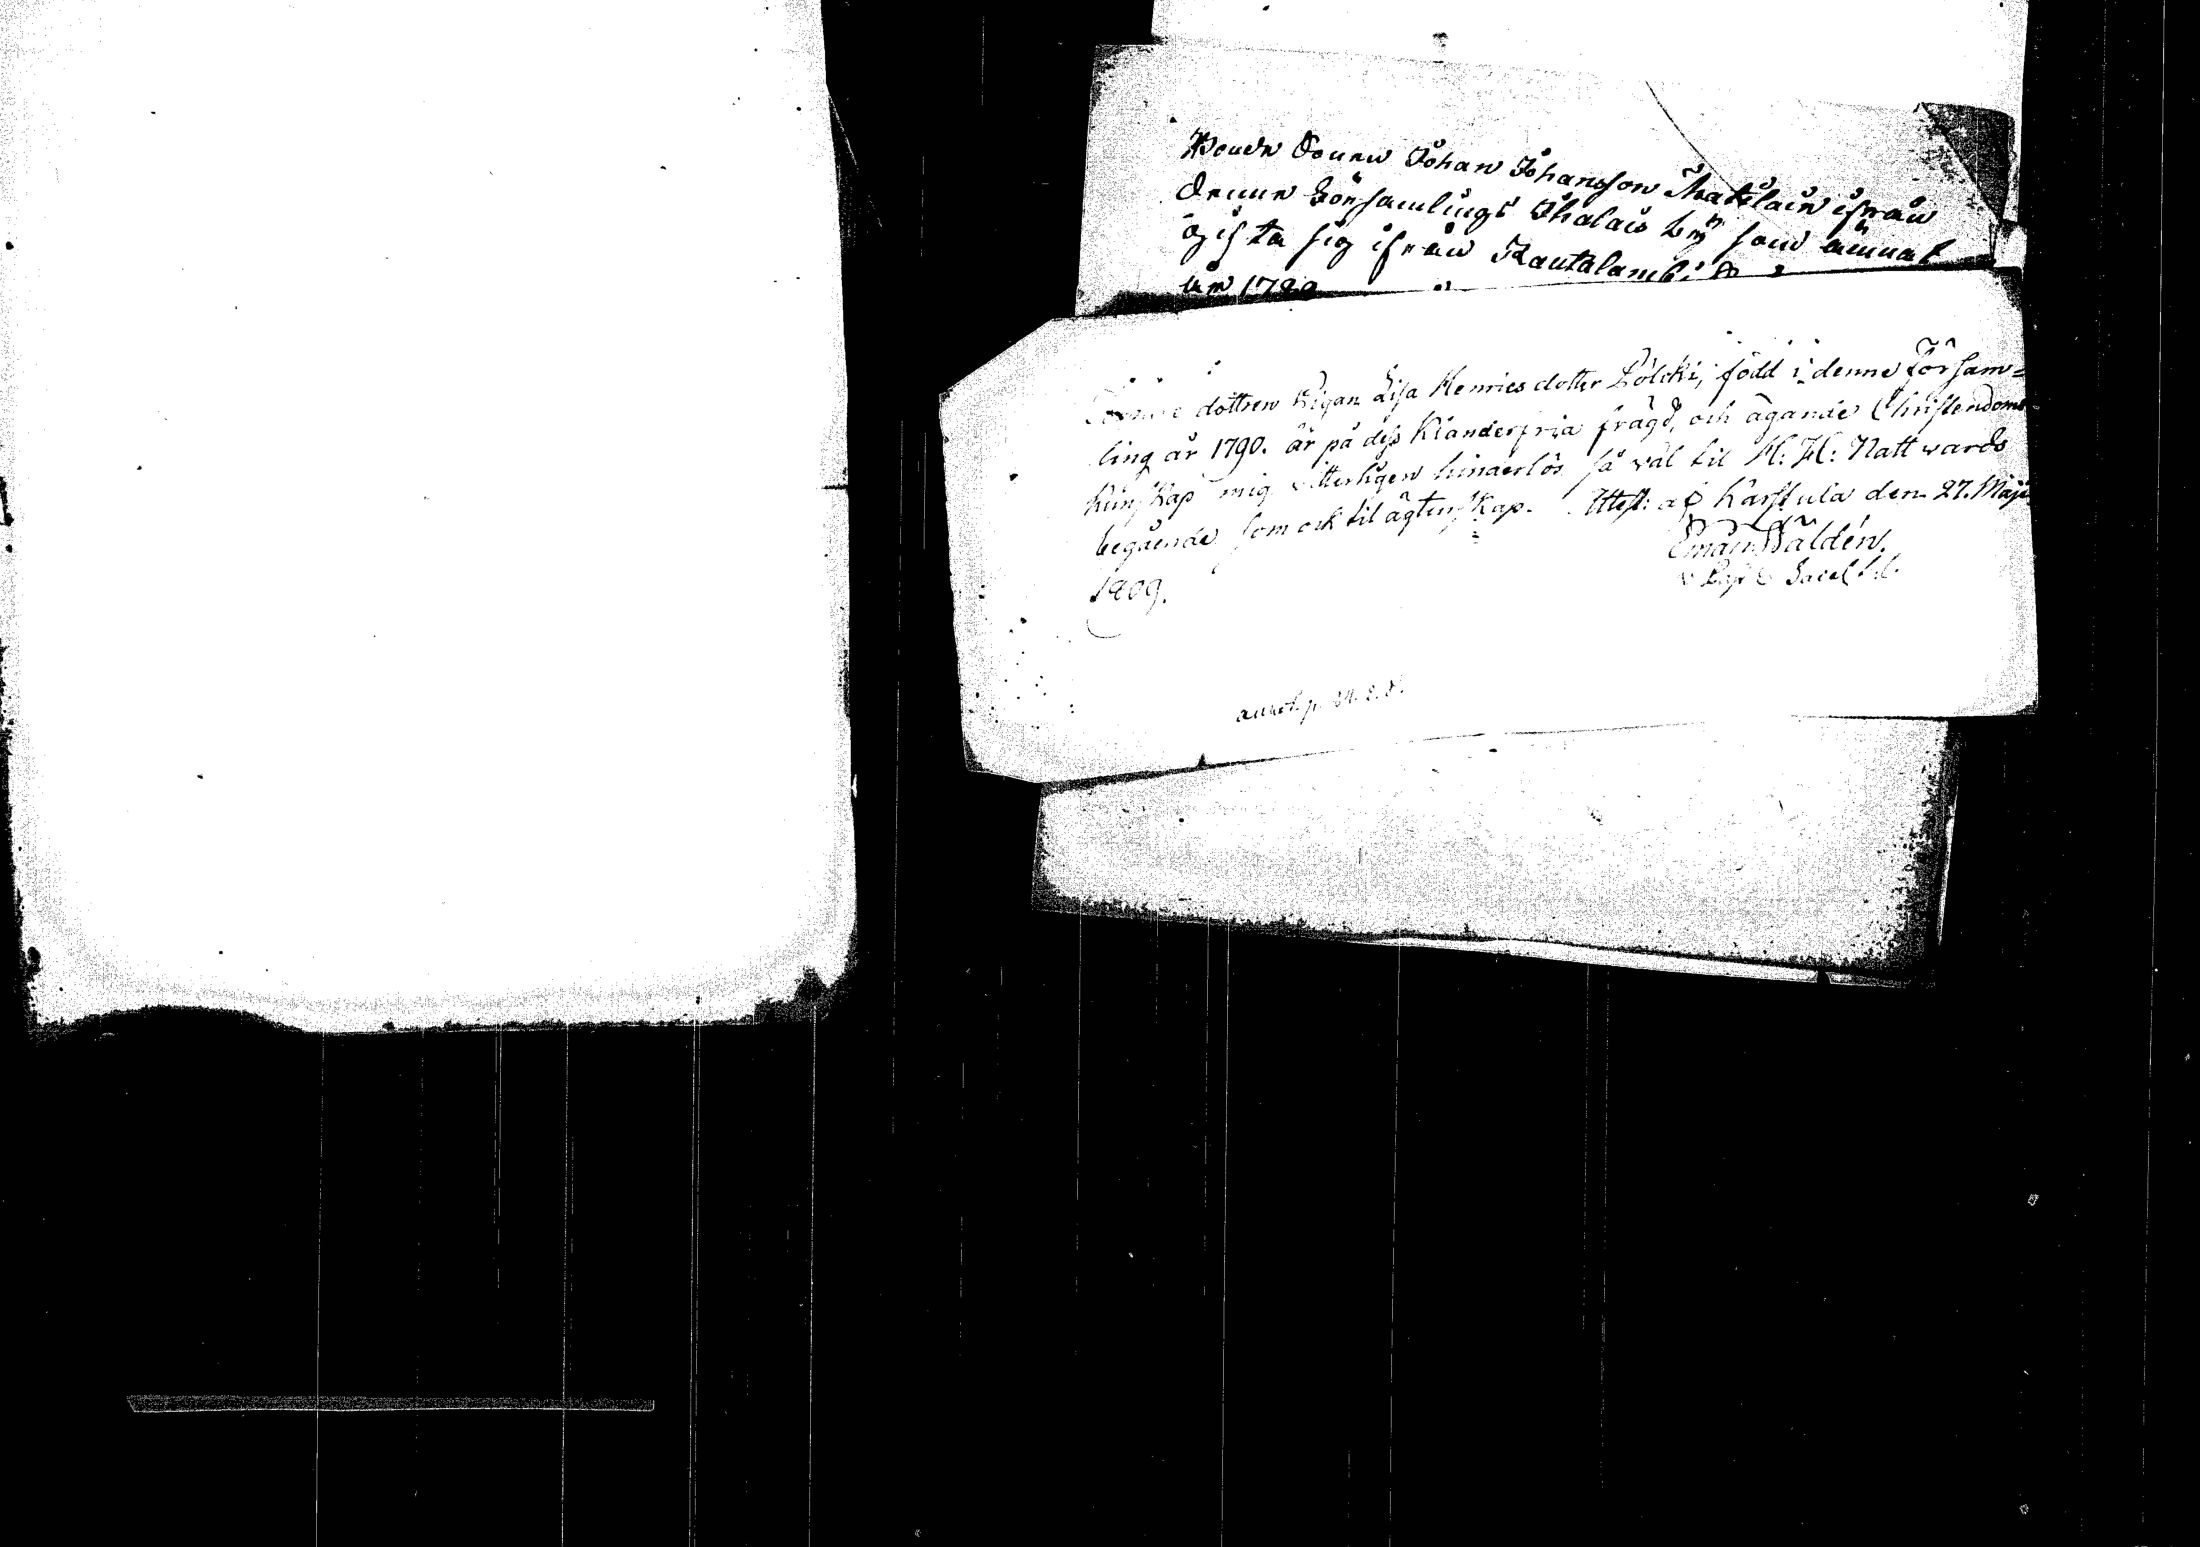 Bonde Sonen Johan Johansson Matilain ifrån
denne Församlings Ihalais by som ämnat
ifrån Rautalambi
år 17
dottren Pigan Lisa Henricsdotter Pölcki, född i denne Försam=
ling år 1790. är på dess Klanderfria frägd, och ägande Christendoms
Kunskap mig vitterligen hinderlös så väl til H: H: Nattvards
begående som ock til ägtenskap. Attest: af Karstula den 27. Maji
1809.
Eman: Wäldén.
annot. p.